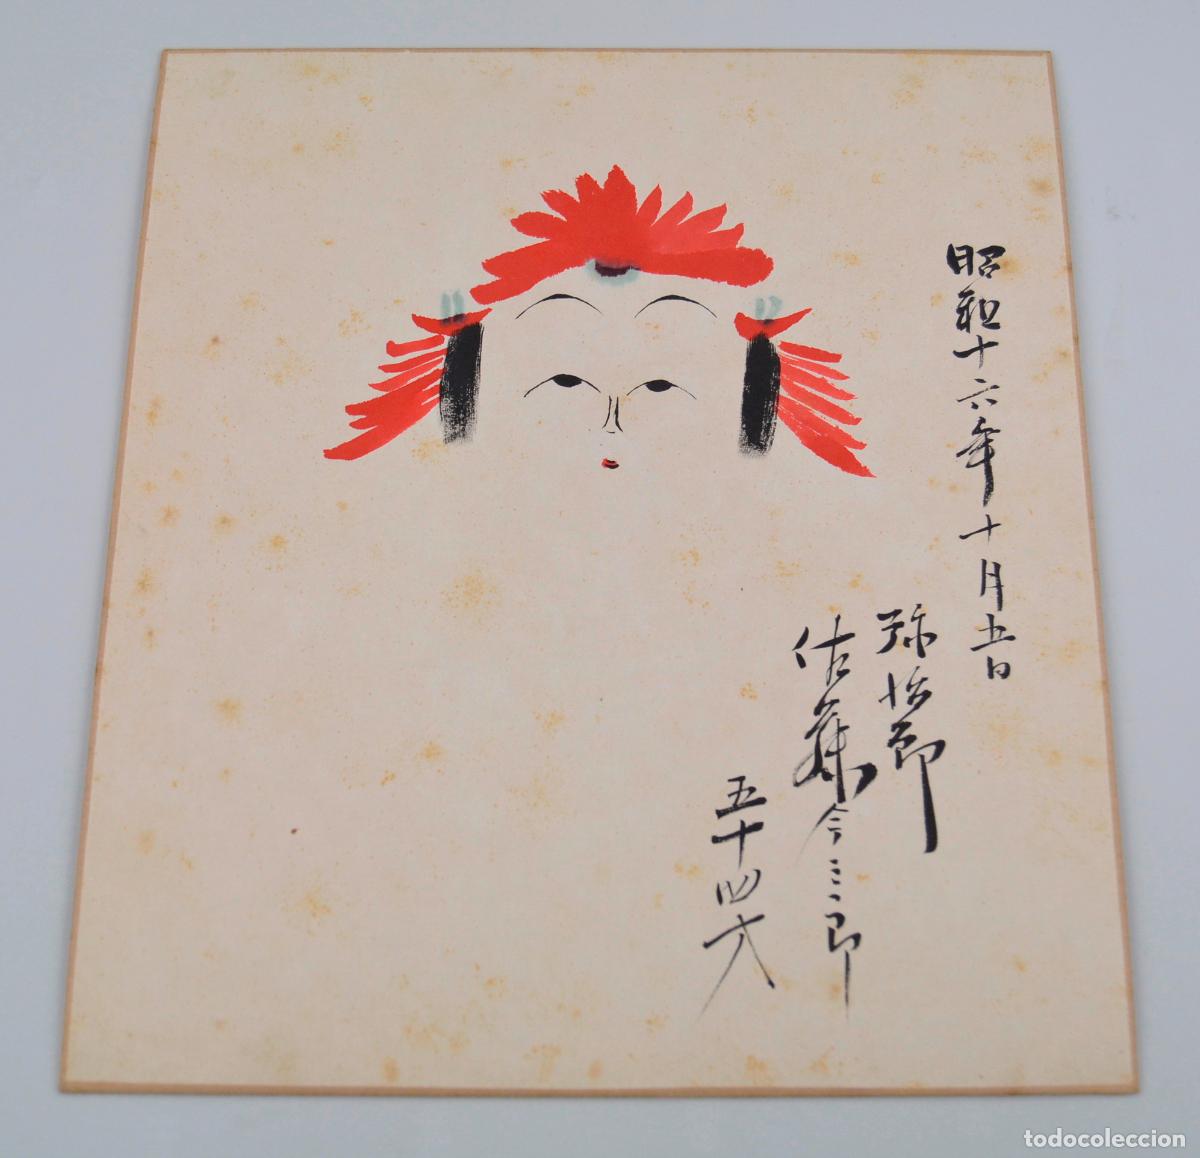 昭和十六年十月五日
弥治郎
佐藤今三郎
五十四才
todocoleccion